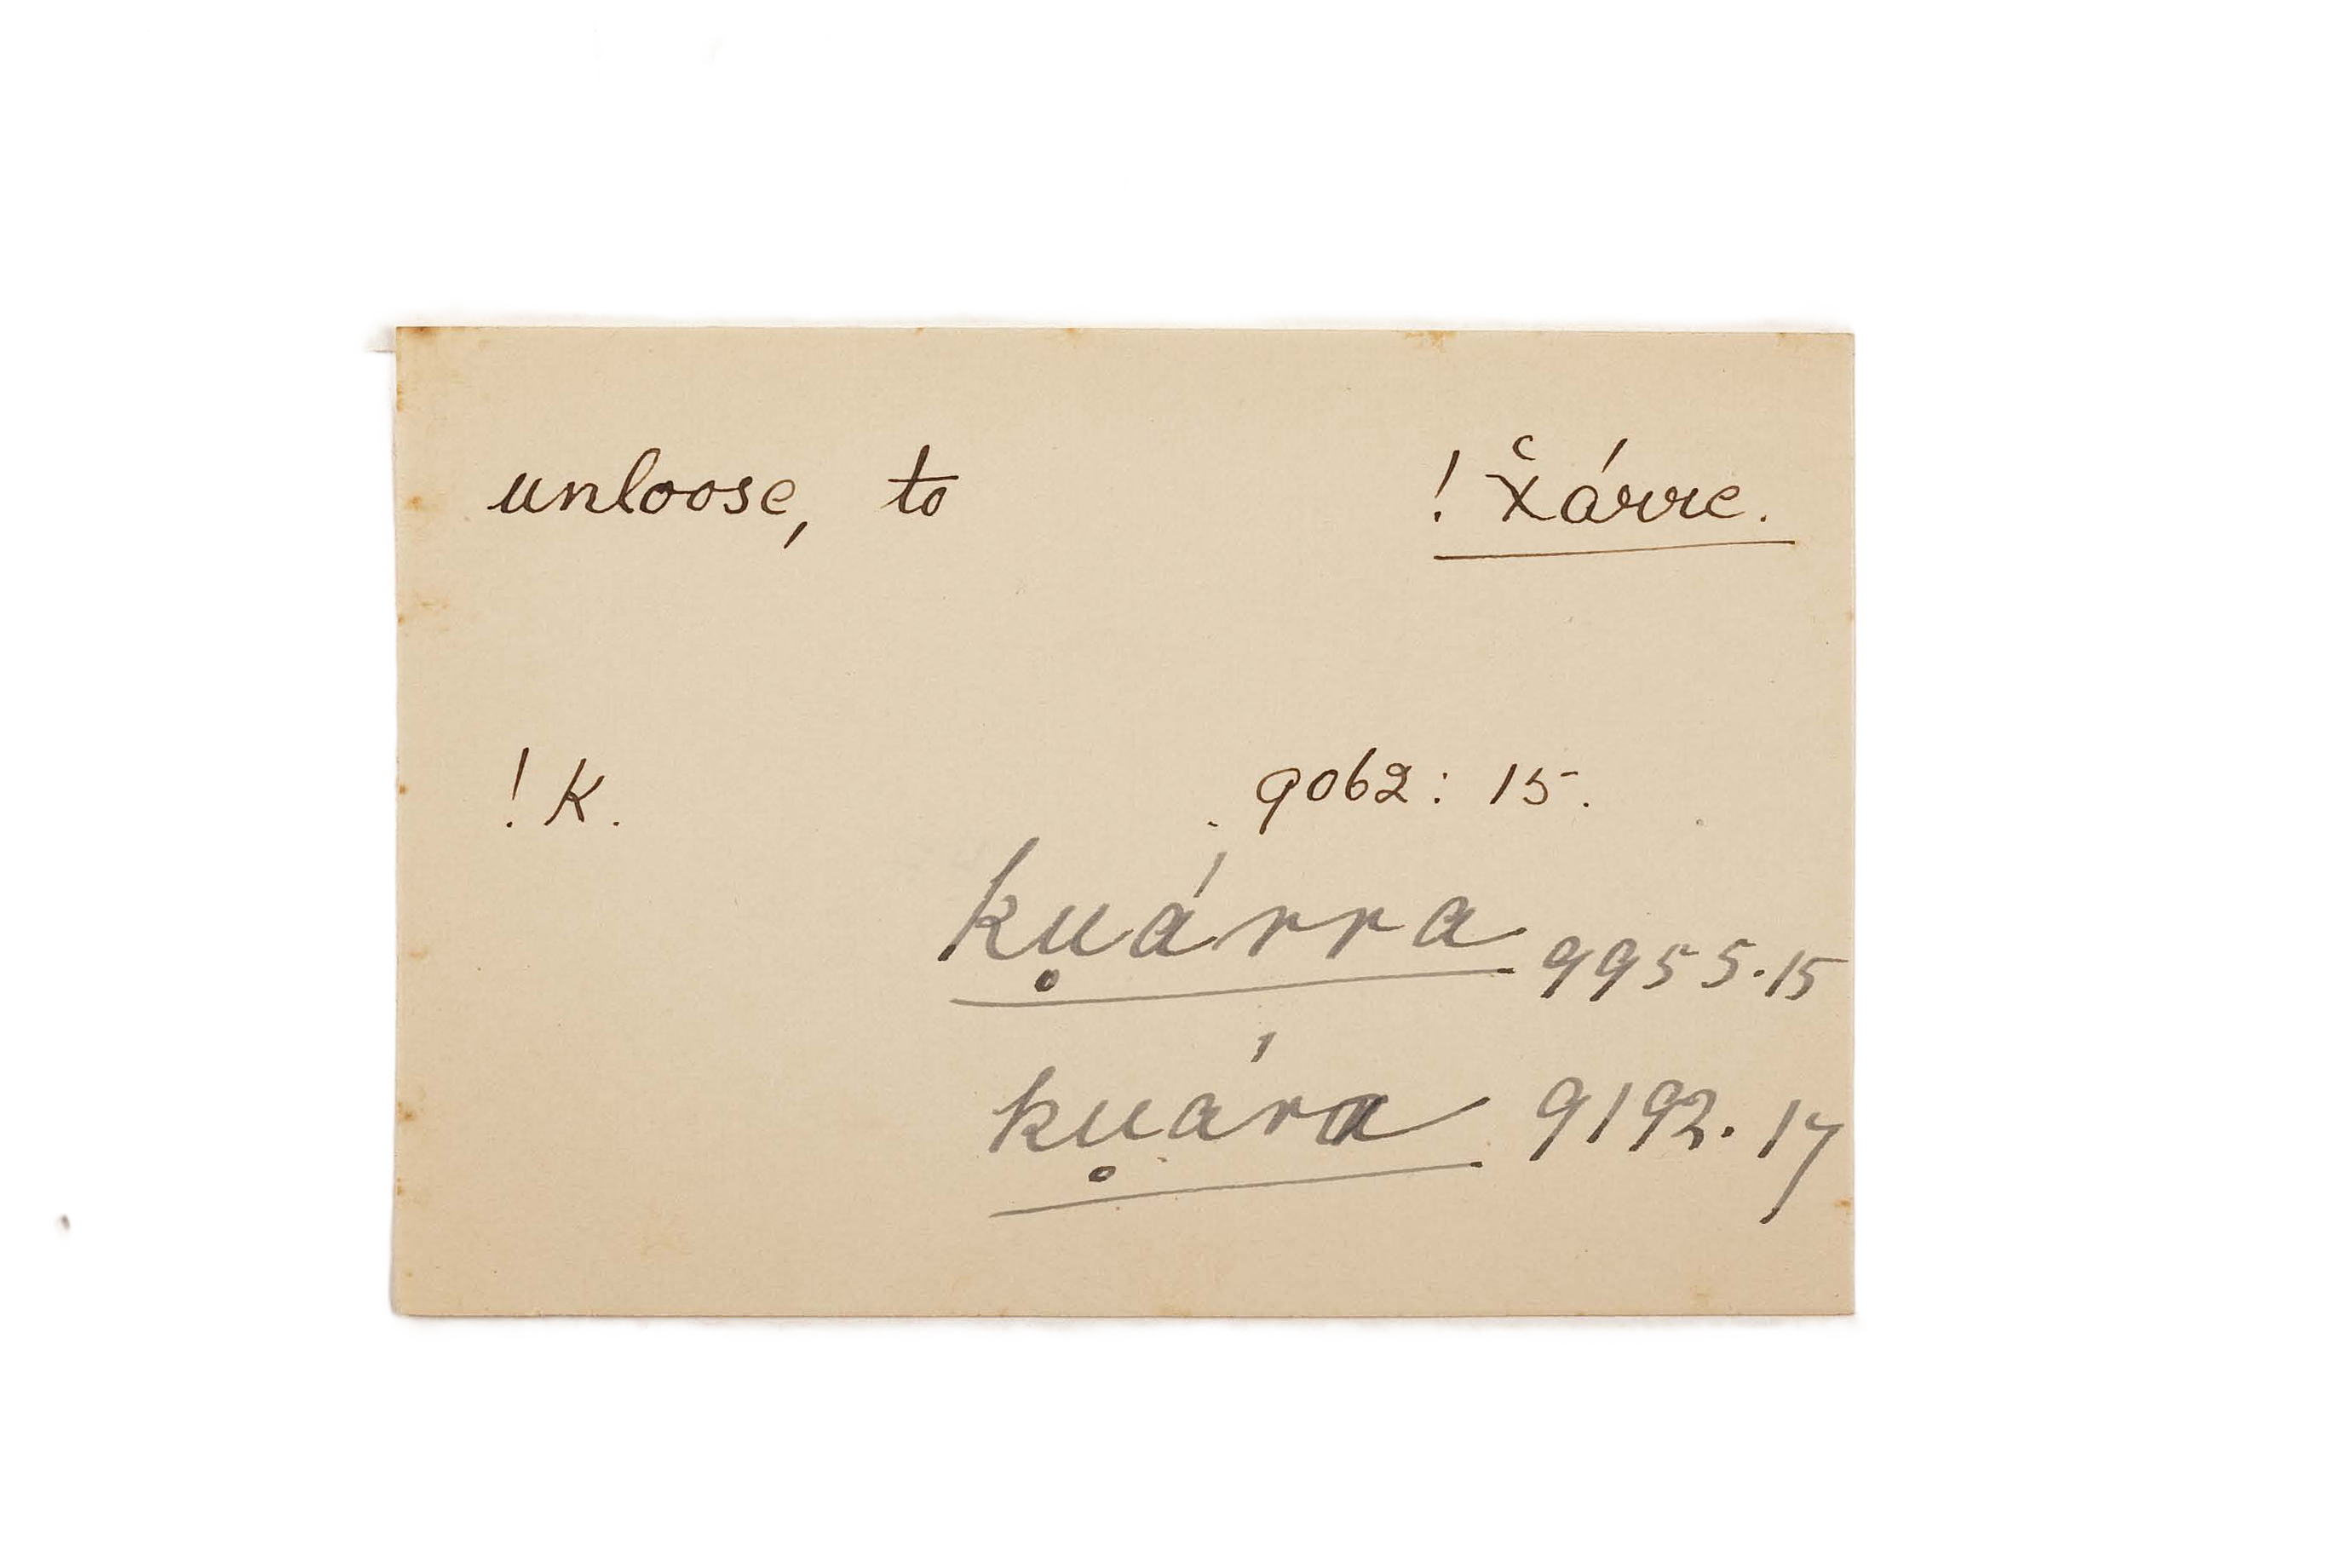 unloose, to ! χ̆árre.
! K. 9062: 15.
ku̥árra 9955.15
ku̥ára 9192.17